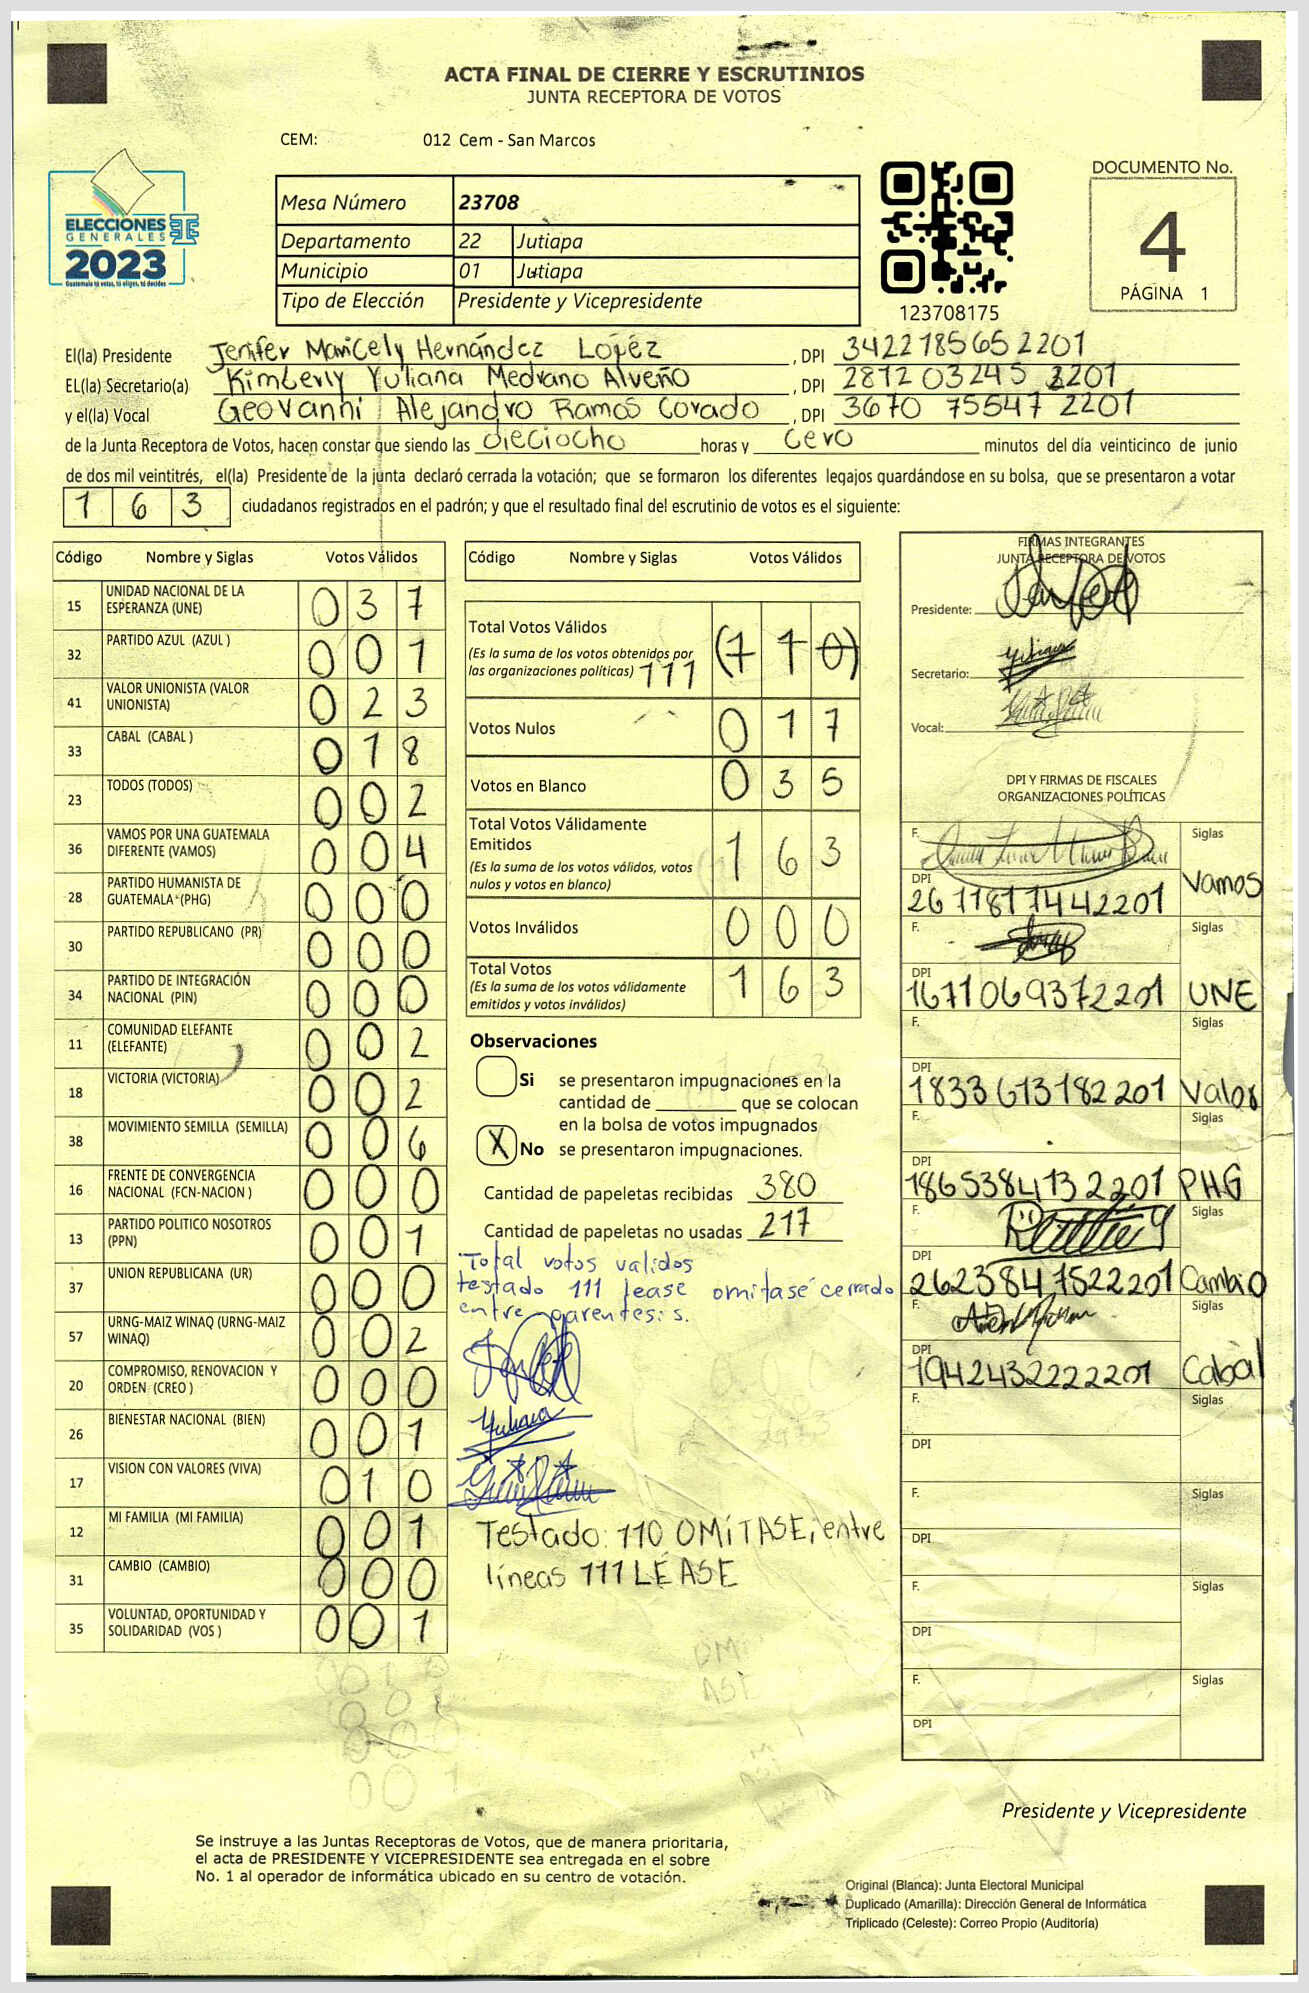 ACTA FINAL DE CIERRE Y ESCRUTINIOS
JUNTA RECEPTORA DE VOTOS
CEM: 012 Cem - San Marcos
ELECCIONES
GENERALES
2023
Guatemala tú votas, tú eliges, tú decides
Mesa Número 23708
Departamento 22 Jutiapa
Municipio 01 Jutiapa
Tipo de Elección Presidente y Vicepresidente
123708175
DOCUMENTO No.
4
PÁGINA 1
El(la) Presidente Jenifer Maricely Hernández López , DPI 342218565 2201
EL(la) Secretario(a) Kimberly Yuliana Medrano Alveño , DPI 2812 03245 2201
y el(la) Vocal Geovanni Alejandro Ramos Corado , DPI 3670 75547 2201
de la Junta Receptora de Votos, hacen constar que siendo las dieciocho horas y cero minutos del día veinticinco de junio
de dos mil veintitrés, el(la) Presidente de la junta declaró cerrada la votación; que se formaron los diferentes legajos guardándose en su bolsa, que se presentaron a votar
1 6 3 ciudadanos registrados en el padrón; y que el resultado final del escrutinio de votos es el siguiente:
Código Nombre y Siglas Votos Válidos
15 UNIDAD NACIONAL DE LA ESPERANZA (UNE) 0 3 7
32 PARTIDO AZUL (AZUL ) 0 0 1
41 VALOR UNIONISTA (VALOR UNIONISTA) 0 2 3
33 CABAL (CABAL ) 0 1 8
23 TODOS (TODOS) 0 0 2
36 VAMOS POR UNA GUATEMALA DIFERENTE (VAMOS) 0 0 4
28 PARTIDO HUMANISTA DE GUATEMALA (PHG) 0 0 0
30 PARTIDO REPUBLICANO (PR) 0 0 0
34 PARTIDO DE INTEGRACIÓN NACIONAL (PIN) 0 0 0
11 COMUNIDAD ELEFANTE (ELEFANTE) 0 0 2
18 VICTORIA (VICTORIA) 0 0 2
38 MOVIMIENTO SEMILLA (SEMILLA) 0 0 6
16 FRENTE DE CONVERGENCIA NACIONAL (FCN-NACION ) 0 0 0
13 PARTIDO POLITICO NOSOTROS (PPN) 0 0 1
37 UNION REPUBLICANA (UR) 0 0 0
57 URNG-MAIZ WINAQ (URNG-MAIZ WINAQ) 0 0 2
20 COMPROMISO, RENOVACION Y ORDEN (CREO ) 0 0 0
26 BIENESTAR NACIONAL (BIEN) 0 0 1
17 VISION CON VALORES (VIVA) 0 1 0
12 MI FAMILIA (MI FAMILIA) 0 0 1
31 CAMBIO (CAMBIO) 0 0 0
35 VOLUNTAD, OPORTUNIDAD Y SOLIDARIDAD (VOS ) 0 0 1
Código Nombre y Siglas Votos Válidos
Total Votos Válidos (1 1 0)
(Es la suma de los votos obtenidos por
las organizaciones políticas) 111
Votos Nulos 0 1 7
Votos en Blanco 0 3 5
Total Votos Válidamente
Emitidos 1 6 3
(Es la suma de los votos válidos, votos
nulos y votos en blanco)
Votos Inválidos 0 0 0
Total Votos 1 6 3
(Es la suma de los votos válidamente
emitidos y votos inválidos)
Observaciones
Si se presentaron impugnaciones en la
cantidad de ________ que se colocan
en la bolsa de votos impugnados
X No se presentaron impugnaciones.
Cantidad de papeletas recibidas 380
Cantidad de papeletas no usadas 217
Total votos validos
testado 111 lease omitase cerrado
entre parentesis.
Yuliana
Testado: 110 OMÍTASE, entre
líneas 111 LÉASE
FIRMAS INTEGRANTES
JUNTA RECEPTORA DE VOTOS
Presidente:
Secretario:
Vocal:
DPI Y FIRMAS DE FISCALES
ORGANIZACIONES POLÍTICAS
F. Siglas
DPI 2611817442201 Vamos
F. Siglas
DPI 1671069372201 UNE
F. Siglas
DPI 1833613182201 Valor
F. Siglas
DPI 1865384132201 PHG
F. Siglas
DPI 2623847522201 Cambio
F. Siglas
DPI 1942432222201 Cabal
F. Siglas
DPI
F. Siglas
DPI
F. Siglas
DPI
F. Siglas
DPI
Presidente y Vicepresidente
Se instruye a las Juntas Receptoras de Votos, que de manera prioritaria,
el acta de PRESIDENTE Y VICEPRESIDENTE sea entregada en el sobre
No. 1 al operador de informática ubicado en su centro de votación.
Original (Blanca): Junta Electoral Municipal
Duplicado (Amarilla): Dirección General de Informática
Triplicado (Celeste): Correo Propio (Auditoría)